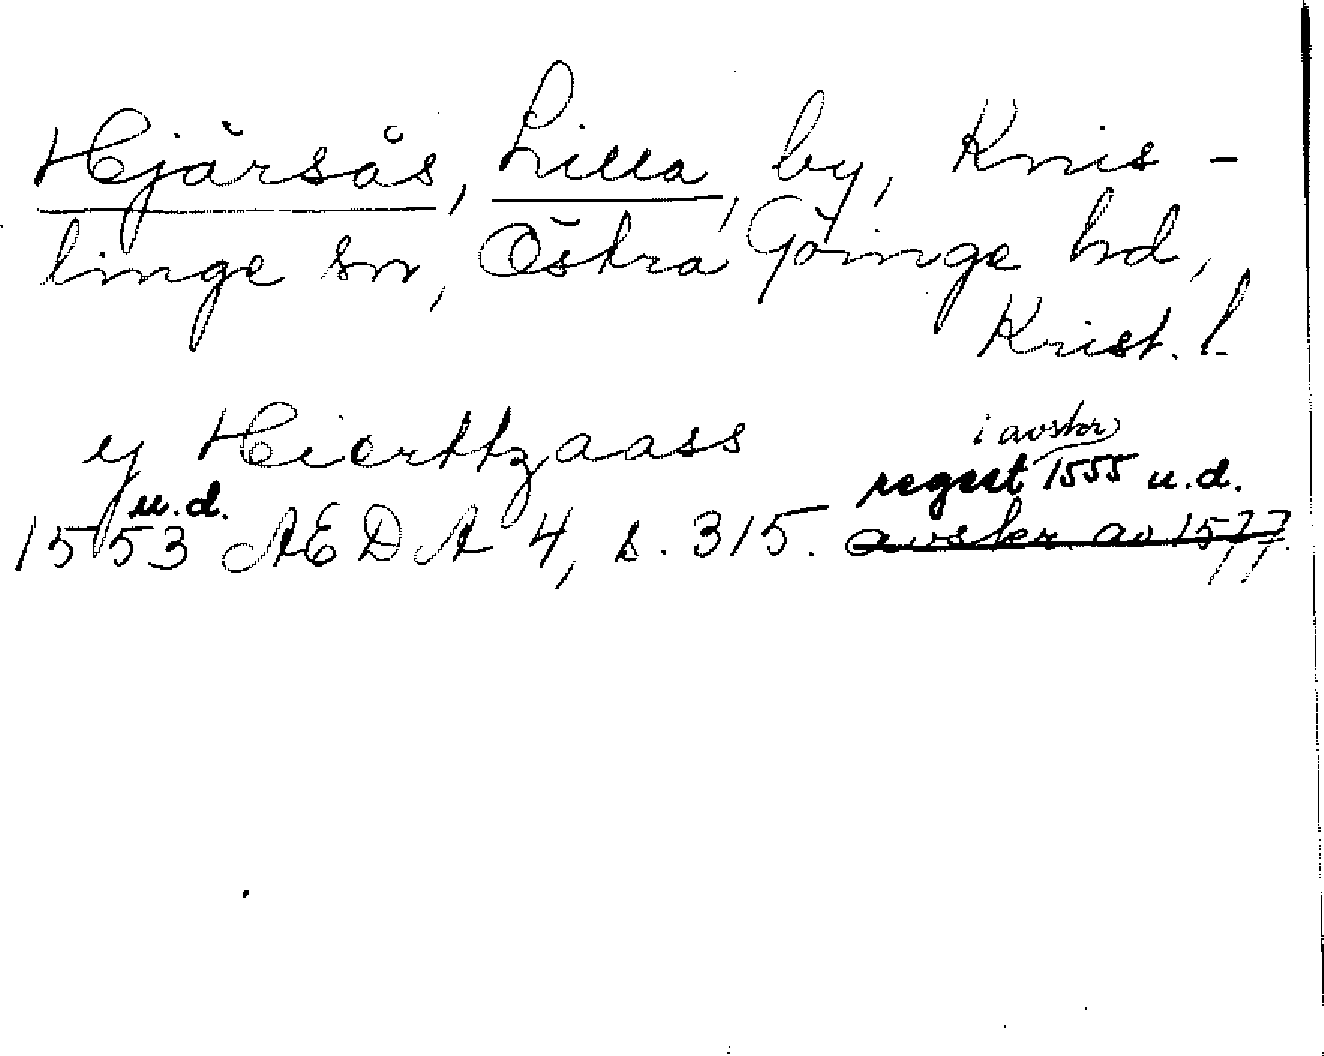 Hjärsås, Lilla, by, Knis-
linge sn, Östra Göinge hd,
Krist. l.
y Hierttzaass
i avskr
u.d. regest 1555 u.d.
1553 AEDA 4, s. 315. avskr. av 1577.